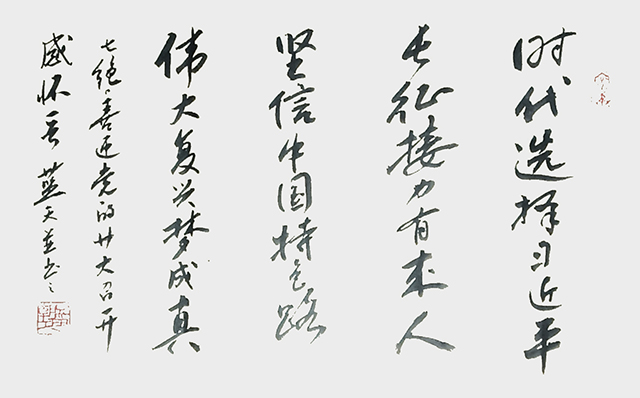 时代选择习近平
长征接力有来人
坚信中国特色路
伟大复兴梦成真
七绝·喜迎党的廿大召开
感怀 蓝天并书